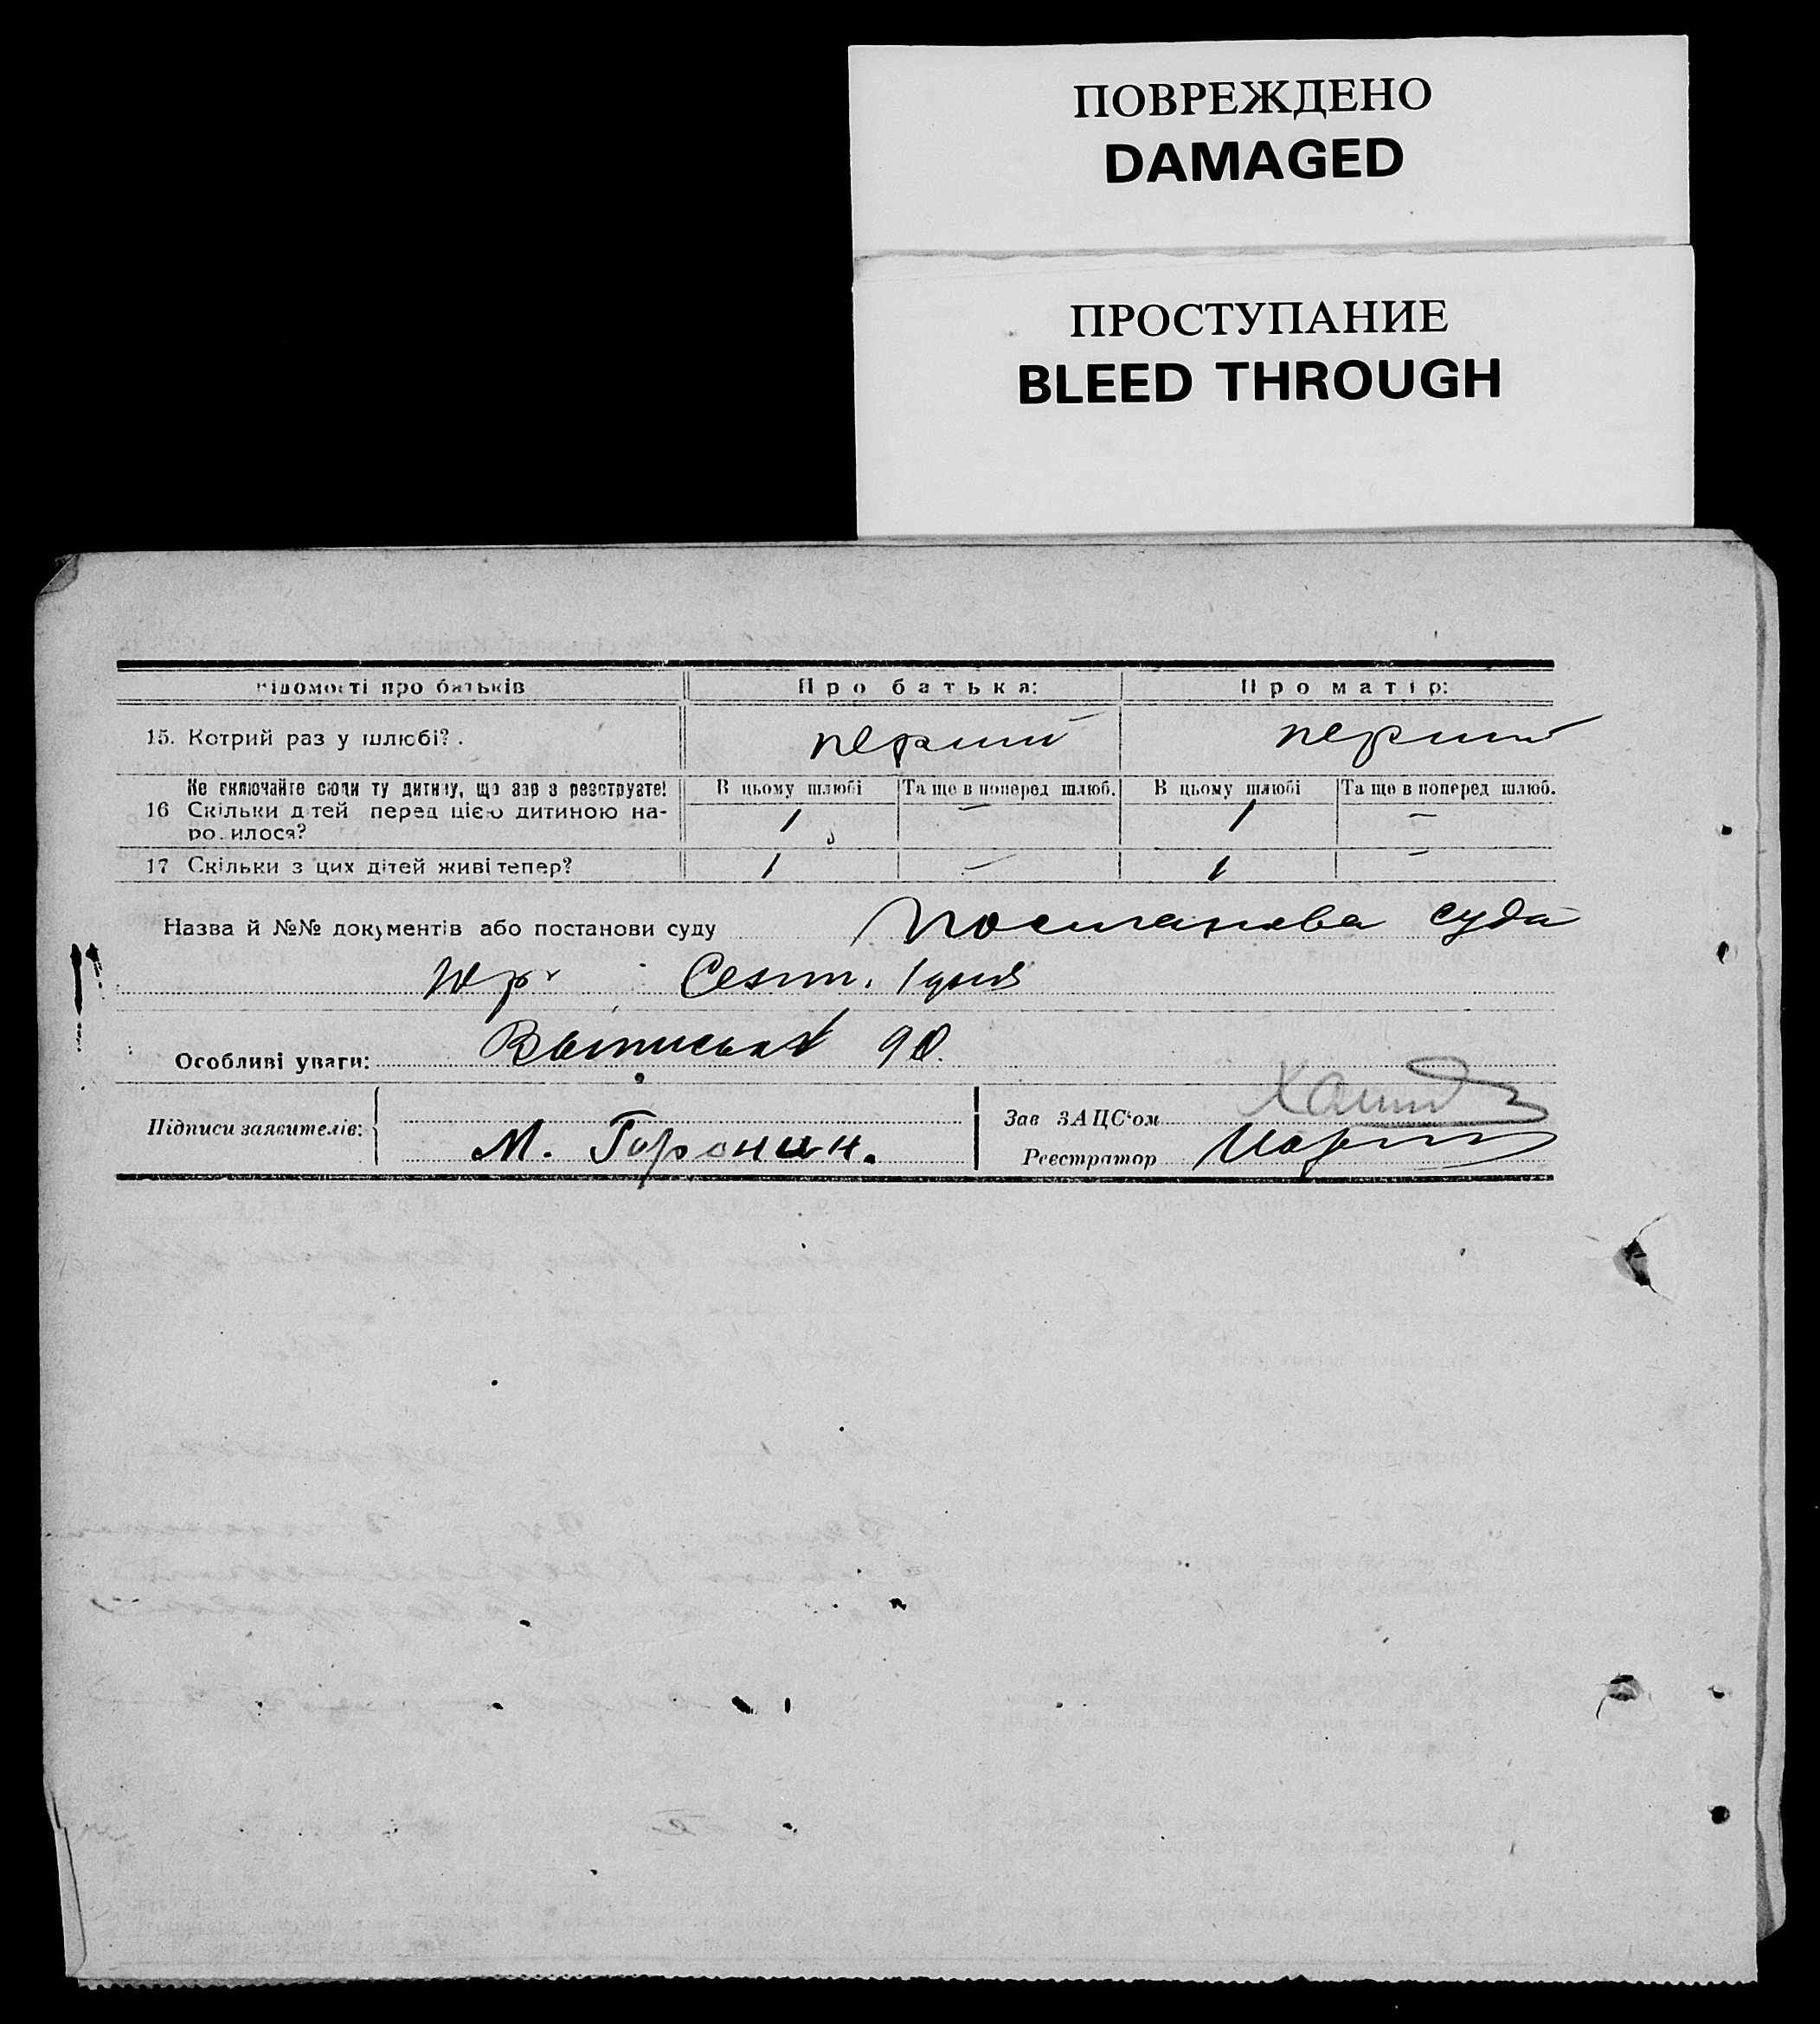 ПОВРЕЖДЕНО
DAMAGED
ПРОСТУПАНИЕ
BLEED THROUGH
Відомості про батьків Про батька: Про матір:
15. Котрий раз у шлюбі? . перший перший
Не включайте сюди ту дитину, що зар з реєструєте! В цьому шлюбі Та ще в поперед шлюб. В цьому шлюбі Та ще в поперед шлюб.
16 Скільки дітей перед цією дитиною на- 1 — 1 —
родилося?
17 Скільки з цих дітей живі тепер? 1 — 1 —
Назва й №№ документів або постанови суду постанова суда
Особливі уваги:
Підписи заявителів: Зав ЗАЦС‘ом
М. Горонин. Реєстратор